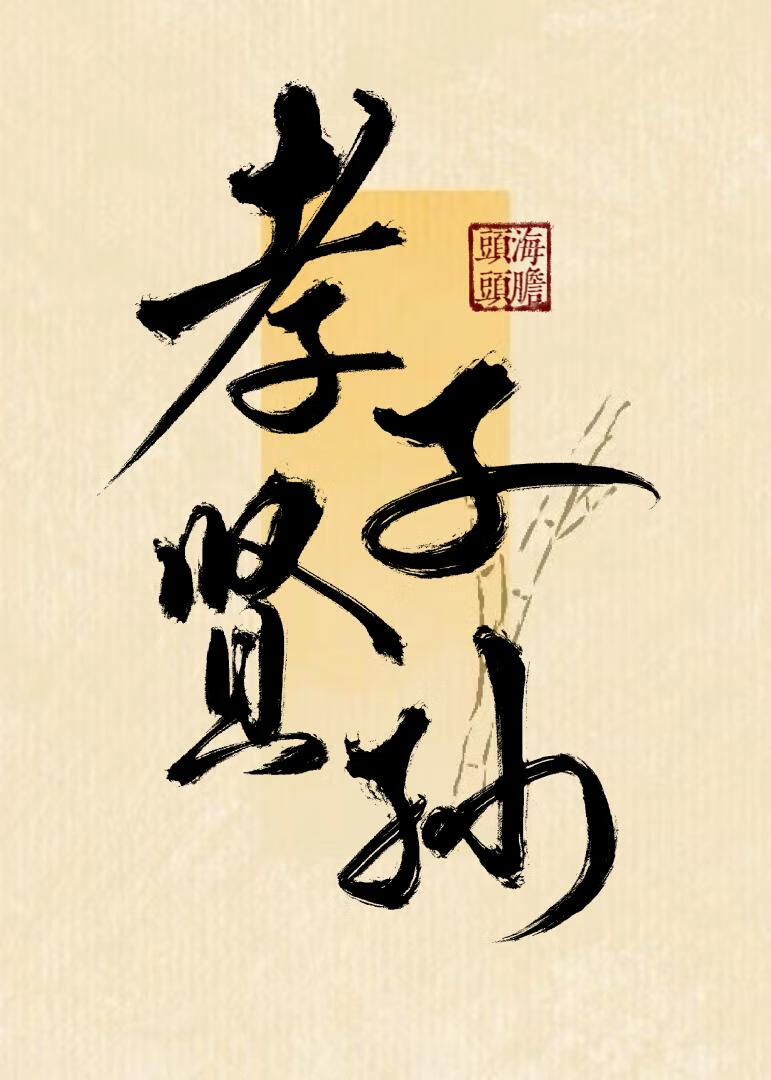 孝子
贤孙
海膽
頭頭